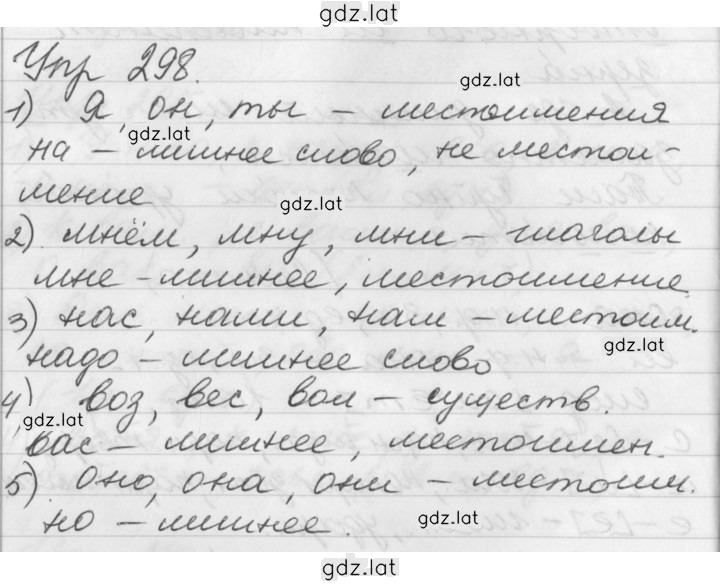 gdz.lat
Упр 298.
gdz.lat
1) Я, он, ты – местоимения
gdz.lat
на – лишнее слово, не местои-
мение
gdz.lat
2) мнём, мну, мни – глаголы
мне – лишнее, местоимение.
3) нас, нами, нам – местоим.
gdz.lat
надо – лишнее слово
4) воз, вес, вол – существ.
gdz.lat
вас – лишнее, местоимен.
5) оно, она, они – местоим.
но – лишнее.
gdz.lat
gdz.lat